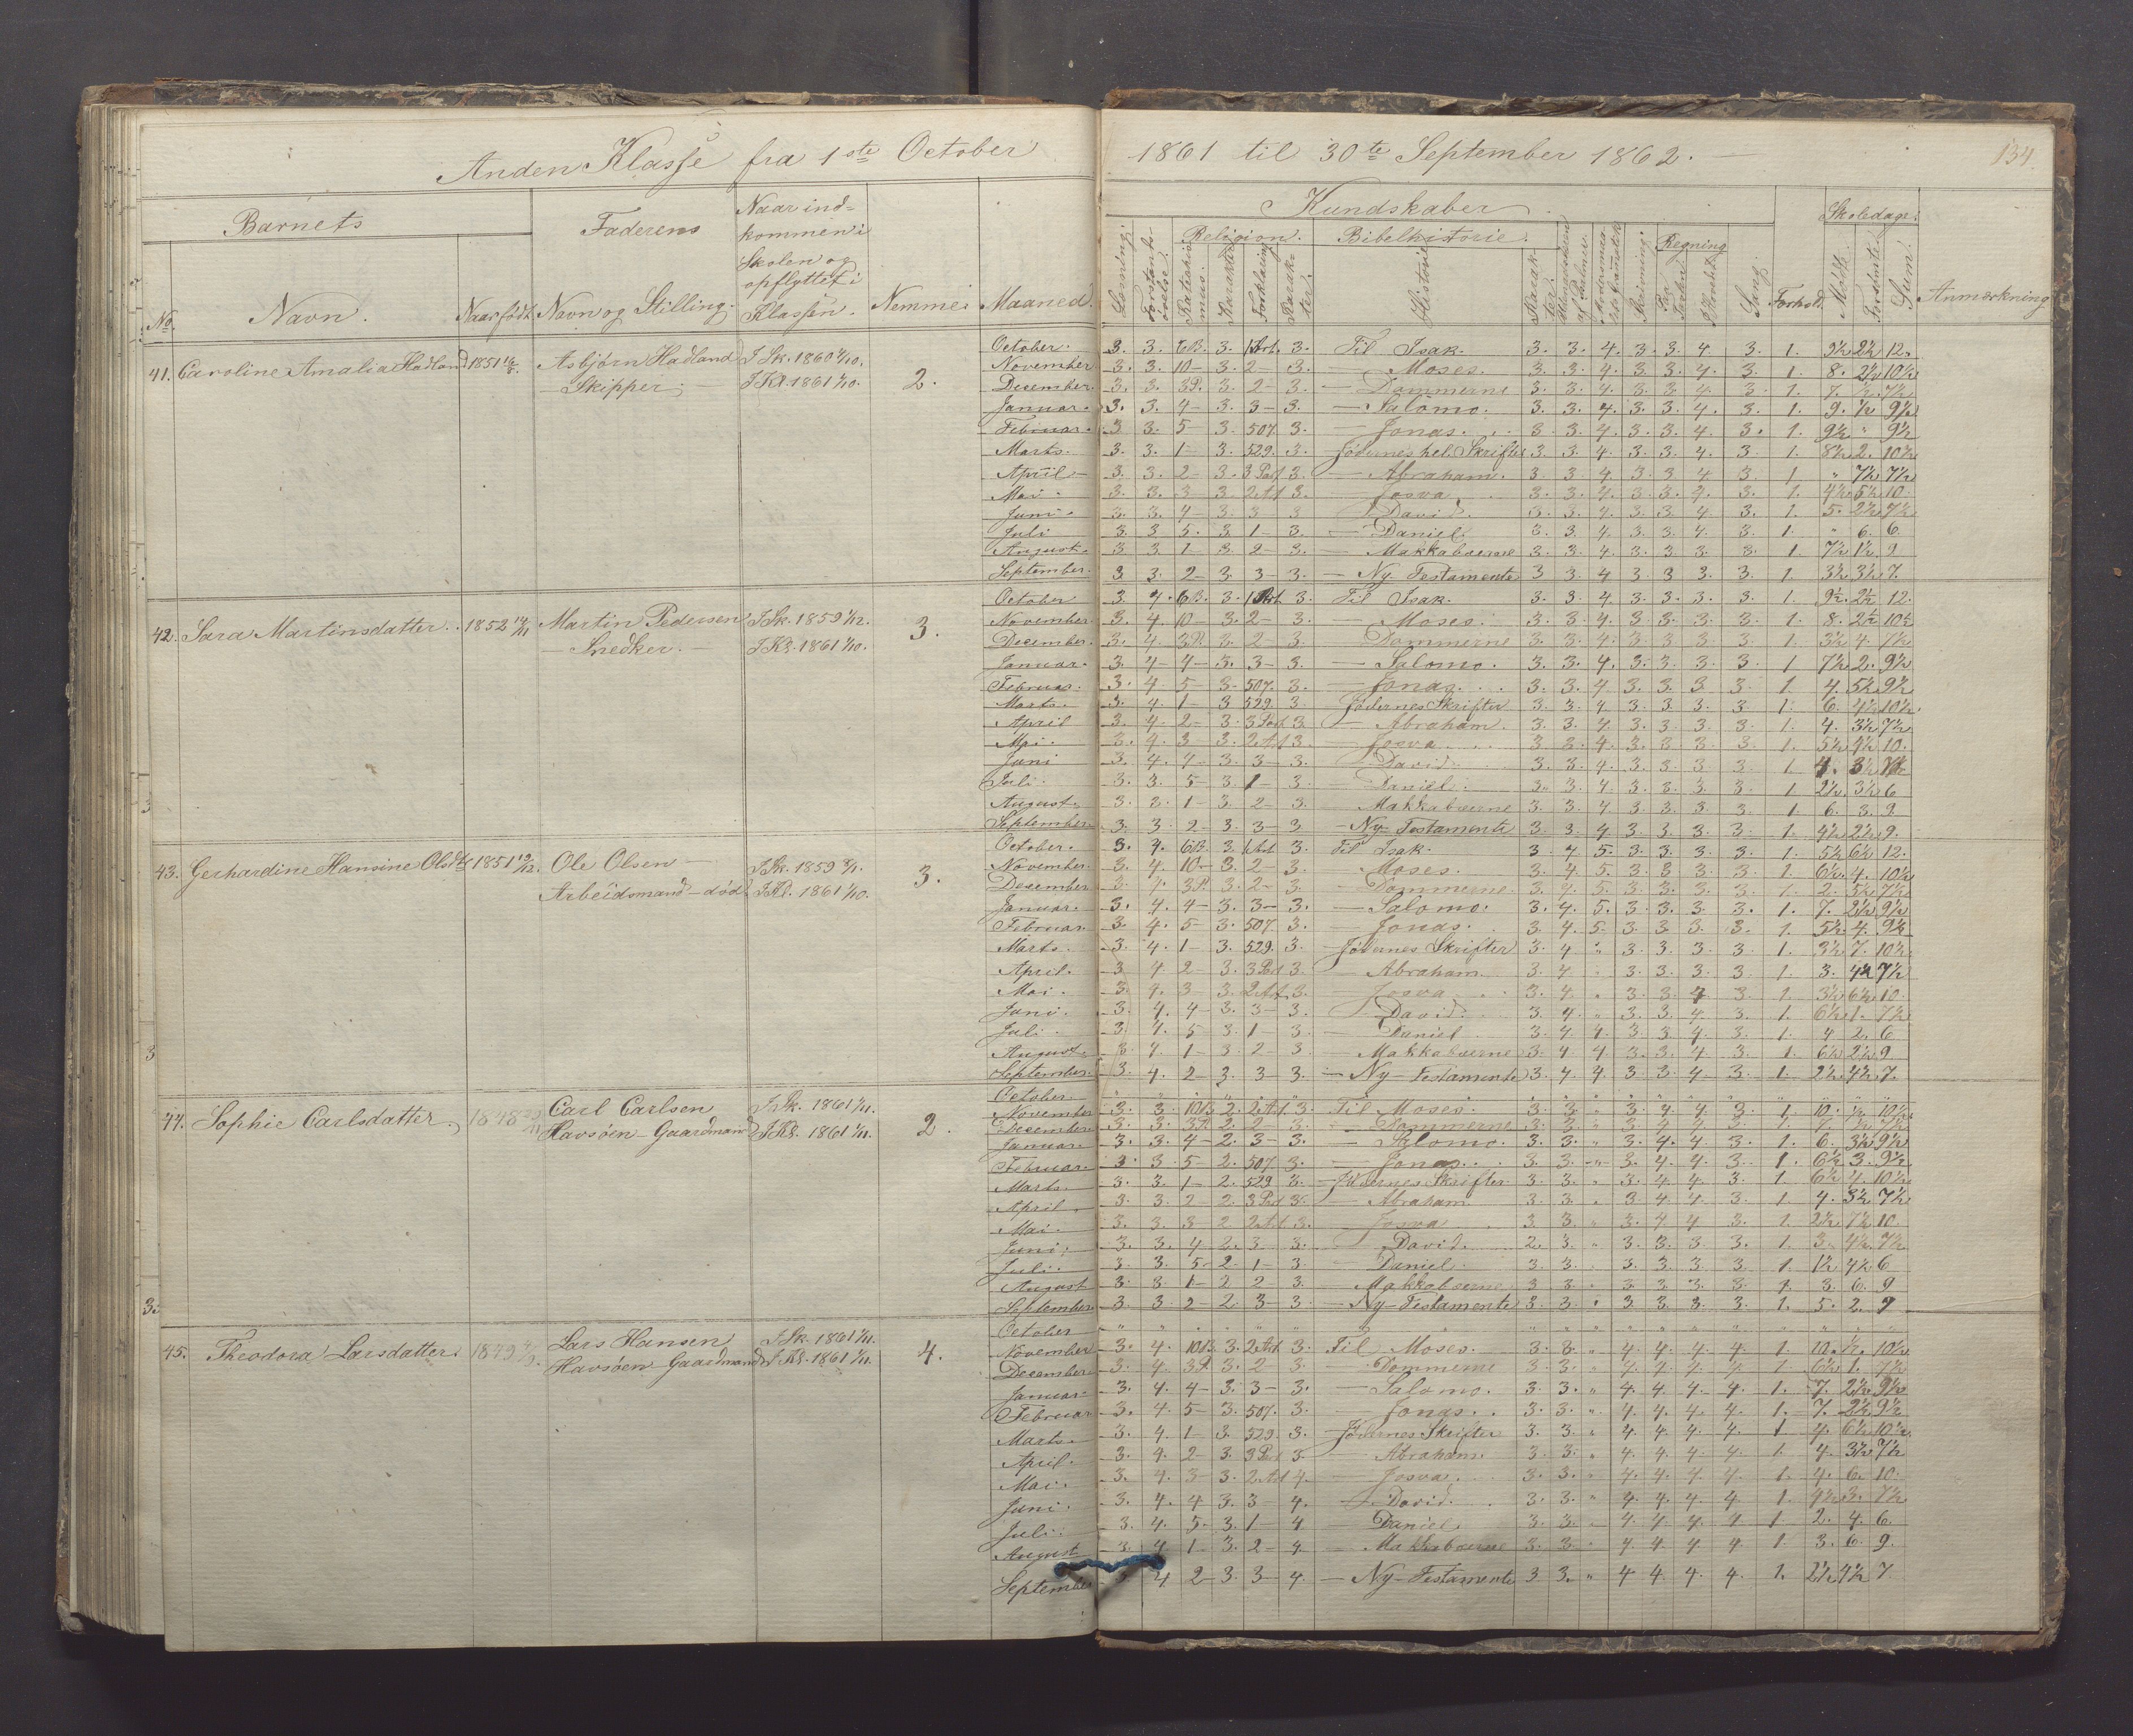 Anden Klasse fra 1ste October
Barnets
Faderens
Naar ind=
kommen i
Skolen og
opflyttet i
Klassen.
No
Navn.
Naar født
Navn og Stilling.
Nemme:
Maaned.
41. Caroline Amalia Hadland 1851 Asbjørn Hadland I Sk. 1860
— Skipper. — I Kl. 1861 1/10. 2.
October.
November
December.
Januar.
Februar.
Marts.
April
Mai.
Juni.
Juli
August.
September.
42. Sara Martinsdatter. 1852 Martin Pedersen I Sk. 1859
— Snedker. — I Kl. 1861 1/10. 3.
October
November
December.
Januar.
Februar.
Marts.
April
Mai.
Juni
Juli.
August.
September.
43. Gerhardine Hansine Olsdtr 1851 Ole Olsen — I Sk. 1859
Arbeidsmand – død I Kl. 1861 1/10. 3.
October.
November
December
Januar.
Februar.
Marts.
April.
Mai.
Juni.
Juli.
August.
September.
44. Sophie Carlsdatter. 1848 Carl Carlsen I Sk. 1861 1/11.
Havsøen – Gaardmand I Kl. 1861 1/11. 2.
October.
November
December
Januar.
Februar.
Marts.
April.
Mai.
Juni.
Juli.
August
September.
45. Theodora Larsdatter. 1849 Lars Hansen I Sk. 1861 1/11.
Havsøen Gaardmand I Kl. 1861 1/11. 4.
October
November
December.
Januar.
Februar
Marts.
April.
Mai.
Juni.
Juli.
August
September
1861 til 30te September 1862. —
134
Kundskaber.
Skoledage.
Religion.
Bibelhistorie.
Regning
Læsning.
Historie
Skrivning.
Sang.
Forhold
Mødte.
Forsømte
Sum.
Anmerkning
3. 3. 6B. 3. 1Art. 3. Til Isak. 3. 3. 4. 3. 3. 4. 3. 1. 9½ 2½ 12.
3. 3. 10 – 3. 2 – 3. — Moses. 3. 3. 4. 3. 3. 4. 3. 1. 8. 2½ 10½
3. 3. 3P. 3. 2 – 3. — Dommerne 3. 3. 4. 3. 3. 4. 3. 1. 7. ½ 7½
3. 3. 4 – 3. 3 – 3. — Salomo. 3. 3. 4. 3. 3. 4. 3. 1. 9. ½ 9½
3. 3. 5 – 3. 507. 3. — Jonas. 3. 3. 4. 3. 3. 4. 3. 1. 9½ " 9½
3. 3. 1 – 3. 529. 3. Jødernes hel. Skrifter 3. 3. 4. 3. 3. 4. 3. 1. 8½ 2. 10½
3. 3. 2 – 3. 3 Part 3. — Abraham. 3. 3. 4. 3. 3. 4. 3. 1 " 7½ 7½
3. 3. 3 – 3. 2 Art 3. — Josva. 3. 3. 4. 3. 3. 4. 3. 1. 4½ 5½ 10.
3. 3. 4 – 3. 3 – 3 — David. 3. 3. 4. 3. 3. 4. 3. 1. 5. 2½ 7½
3. 3. 5. 3. 1 – 3. — Daniel. 3. 3. 4. 3. 3. 4. 3. 1. " 6. 6.
3. 3. 1 – 3. 2 – 3. — Makkabæerne 3. 3. 4. 3. 3. 3. 3. 1. 7½ 1½ 9
3. 3. 2 – 3. 3 – 3. — Ny Testamente 3. 3. 4. 3. 3. 3. 3. 1. 3½ 3½ 7.
3. 4. 6B. 3. 1 Art. 3. Til Isak. 3. 3. 4. 3. 3. 3. 3. 1. 9½ 2½ 12.
3. 4. 10 – 3. 2 – 3. — Moses. 3. 3. 4. 3. 3. 3. 3. 1. 8. 2½ 10½
3. 4. 3P. 3. 2 – 3. — Dommerne 3. 3. 4. 3. 3. 3. 3. 1. 3½ 4. 7½
3. 4 – 4 – 3. 3 – 3. — Salomo. 3. 3. 4. 3. 3. 3. 3. 1. 7½ 2. 9½
3. 4. 5 – 3. 507. 3. — Jonas. 3. 3. 4. 3. 3. 3. 3. 1. 4. 5½ 9½
3. 4. 1 – 3 529. 3. Jødernes Skrifter 3. 3. 4. 3. 3. 3. 3. 1. 6. 4½ 10½
3. 4. 2 – 3. 3 Part 3. — Abraham. 3. 3. 4. 3. 3. 3. 3. 1. 4. 3½ 7½
3. 4. 3 – 3. 2 Art 3. — Josva. 3. 3. 4. 3. 3. 3. 3. 1. 5½ 4½ 10.
3. 4. 4 – 3. 3 – 3. — David. 3. 3. 4. 3. 3. 3. 3. 1 4. 3½ 7½
3. 3. 5 – 3. 1 – 3. — Daniel. 3. 3. 4. 3. 3. 3. 3. 1 2½ 3½ 6
3. 3. 1 – 3. 2 – 3. — Makkabæerne 3. 3. 4. 3. 3. 3. 3. 1. 6. 3. 9.
3. 3. 2 – 3. 3 – 3 — Ny – Testamente 3. 3. 4. 3. 3. 3. 3. 1. 4½ 2½
3. 4. 6B. 3. 1 Art 3. Til Isak. 3. 4. 5. 3. 3. 3. 3. 1. 5½ 6½ 12.
3. 4. 10 – 3. 2 – 3. — Moses. 3. 4. 5. 3. 3. 3. 3. 1. 6½ 4. 10½
3. 4. 3P. 3. 2 – 3. — Dommerne. 3. 4. 5. 3. 3. 3. 3. 1. 2. 5½ 7½
3. 4. 4 – 3. 3 – 3. — Salomo. 3. 4. 5. 3. 3. 3. 3. 1. 7. 2½ 9½
3. 4. 5 – 3. 507 3. — Jonas. 3. 4. 5. 3. 3. 3. 3. 1. 5½ 4. 9½
3. 4. 1 – 3. 529. 3. Jødernes Skrifter 3. 4 " 3. 3. 3. 3. 1. 3½ 7. 10½
3 4. 2 – 3. 3 Part 3. — Abraham. 3. 4 " 3. 3. 3. 3. 1. 3. 4½ 7½
3. 4. 3 – 3. 2 Art 3. — Josva. 3. 4. " 3. 3. 4 3. 1. 3½ 6½ 10.
3. 4. 4 – 3. 3 – 3. — David. 3. 4. " 3. 3. 4. 3. 1. 6½ 1. 7½
3. 4. 5 3. 1 – 3. — Daniel 3. 4. 4. 3. 3. 4. 3. 1. 4 2. 6
3. 4. 1 – 3. 2 – 3. — Makkabæerne 3. 4. 4. 3. 3. 4. 3. 1. 6½ 2½ 9
3. 4. 2 – 3. 3 – 3. — Ny – Testamente 3. 4. 4. 3. 3. 4. 3. 1. 2½ 4½ 7.
3. 3. 10B 2. 2 Art. 3. Til Moses. 3. 3. " 3. 4. 4. 3. 1. 10. ½ 10½
3. 3. 3P. 2. 2 3. — Dommerne 3. 3. " 3. 4. 4. 3. 1. 7. ½ 7½
3. 3. 4 – 2. 3 – 3. — Salomo. 3. 3. " 3. 4. 4. 3. 1. 6. 3½ 9½
3. 3. 5 – 2. 507. 3. — Jonas. 3. 3. " 3. 4. 4. 3. 1. 6½ 3. 9½
3. 3. 1 – 2. 529 3. — Jødernes Skrifter. 3. 3. " 3. 4. 4. 3. 1. 6½ 4. 10½
3 3. 2 – 2. 3 Part 3. — Abraham 3. 3. " 3. 4. 4. 3. 1. 4. 3½ 7½
3. 3. 3 2 2 Art 3. — Josva 3. 3. " 3. 4 4. 3. 1. 2½ 7½ 10.
3. 3. 4 2. 3 3. — David. 2. 3. " 3. 3. 3. 3. 1. 3. 4½ 7½
3 3. 5 – 2. 1 – 3 — Daniel. 3. 3. " 3. 3. 3. 3 1. 1½ 4½ 6
3. 3. 1 – 2 2 – 3. — Makkabæerne 3. 3. " 3. 3. 3. 3. 1. 3. 6. 9
3. 3 2 – 2. 3 – 3. — Ny – Testamente 3. 3. " 3. 3. 3. 3. 1. 5. 2.
3. 4. 10B. 3. 2 Art 3. Til Moses. 3. 3. " 4. 4. 4. 4. 1. 10. ½. 10½
3. 4. 3P. 3. 2 3. — Dommerne 3. 3. " 4. 4. 4. 4. 1. 6½ 1. 7½
3. 4. 4 – 3. 3 – 3. — Salomo. 3. 3. " 4. 4. 4. 4. 1. 7. 2½ 9½
3. 4. 5 – 3. 507. 3. — Jonas. 3. 3. " 4. 4. 4. 4. 1. 7. 2½ 9½
3. 4. 1 – 3. 529. 3. — Jødernes Skrifter 3. 3. " 4. 4. 4. 4. 1 4. 6½ 10½
3. 4. 2 – 3. 3 Part 3. — Abraham. 3. 3. " 4. 4. 4. 4. 1. 4. 3½ 7½
3. 4. 3 – 3. 2 Art 4. — Josva. 3. 3. " 4. 4. 4. 4. 1. 4. 6. 10.
3. 4. 4 3. 3 – 4. — David. 3. 3. " 4. 4. 4. 4. 1. 4½ 3. 7½
3. 4. 5. 3. 1 – 4 — Daniel. 3. 3. " 4. 4. 4. 4 1 2. 4. 6.
3. 4 1 – 3. 2 – 4. — Makkabæerne 3. 3. " 4. 4. 4. 4. 1. 3. 6. 9.
3 4 2 – 3. 3 – 4. — Ny – Testamente 3. 3. " 4 4. 4. 4. 1. 2½ 4½ 7